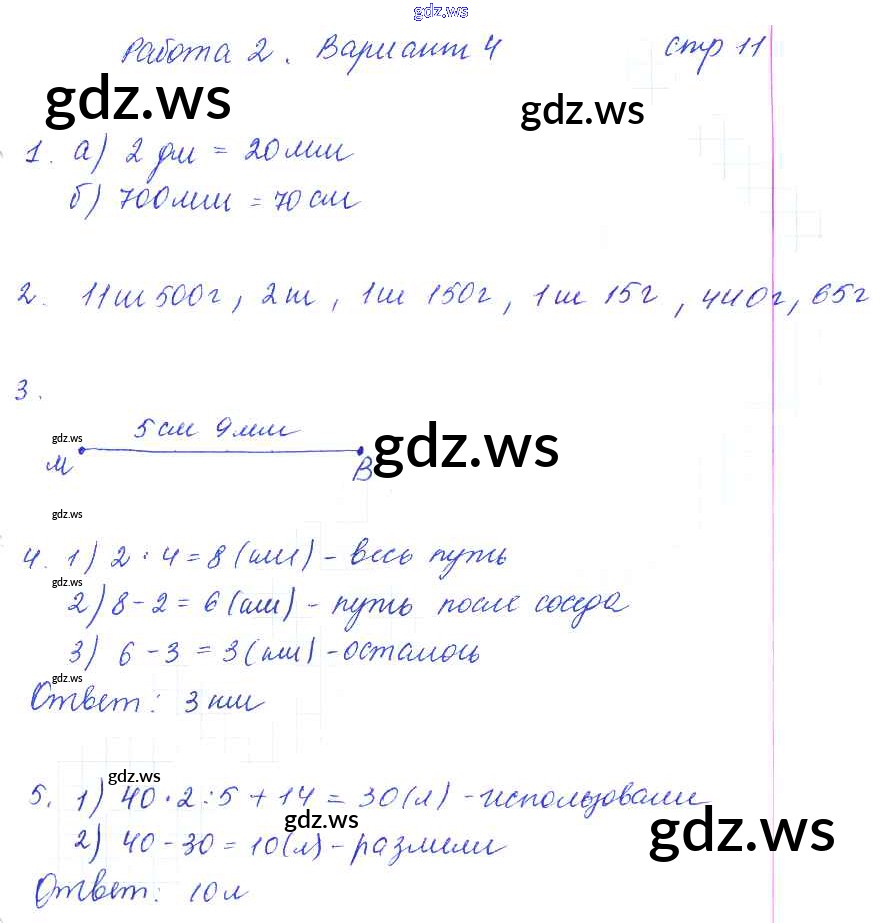 gdz.ws
Работа 2. Вариант 4 стр 11
gdz.ws gdz.ws
1. а) 2 дм = 20 мм
б) 700 мм = 70 см
2. 11т 500г, 2т, 1т 150г, 1т 15г, 440г, 65г
3.
5 см 9 мм
gdz.ws
gdz.ws
М В
gdz.ws
4. 1) 2 · 4 = 8 (км) - весь путь
gdz.ws
2) 8 - 2 = 6 (км) - путь после соседа
3) 6 - 3 = 3 (км) - осталось
gdz.ws
Ответ: 3 км
gdz.ws
5. 1) 40 · 2 : 5 + 14 = 30 (л) - использовали
gdz.ws gdz.ws
2) 40 - 30 = 10 (л) - размели
Ответ: 10 л